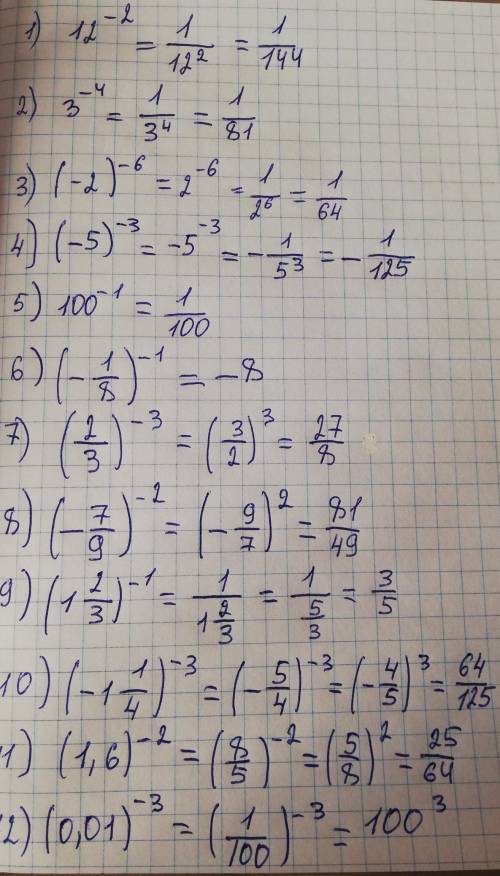 1) 12^-2 = 1/12^2 = 1/144
2) 3^-4 = 1/3^4 = 1/81
3) (-2)^-6 = 2^-6 = 1/2^6 = 1/64
4) (-5)^-3 = -5^-3 = -1/5^3 = -1/125
5) 100^-1 = 1/100
6) (-1/8)^-1 = -8
7) (2/3)^-3 = (3/2)^3 = 27/8
8) (-7/9)^-2 = (-9/7)^2 = 81/49
9) (1 2/3)^-1 = 1/(1 2/3) = 1/(5/3) = 3/5
10) (-1 1/4)^-3 = (-5/4)^-3 = (-4/5)^3 = 64/125
1) (1,6)^-2 = (8/5)^-2 = (5/8)^2 = 25/64
2) (0,01)^-3 = (1/100)^-3 = 100^3